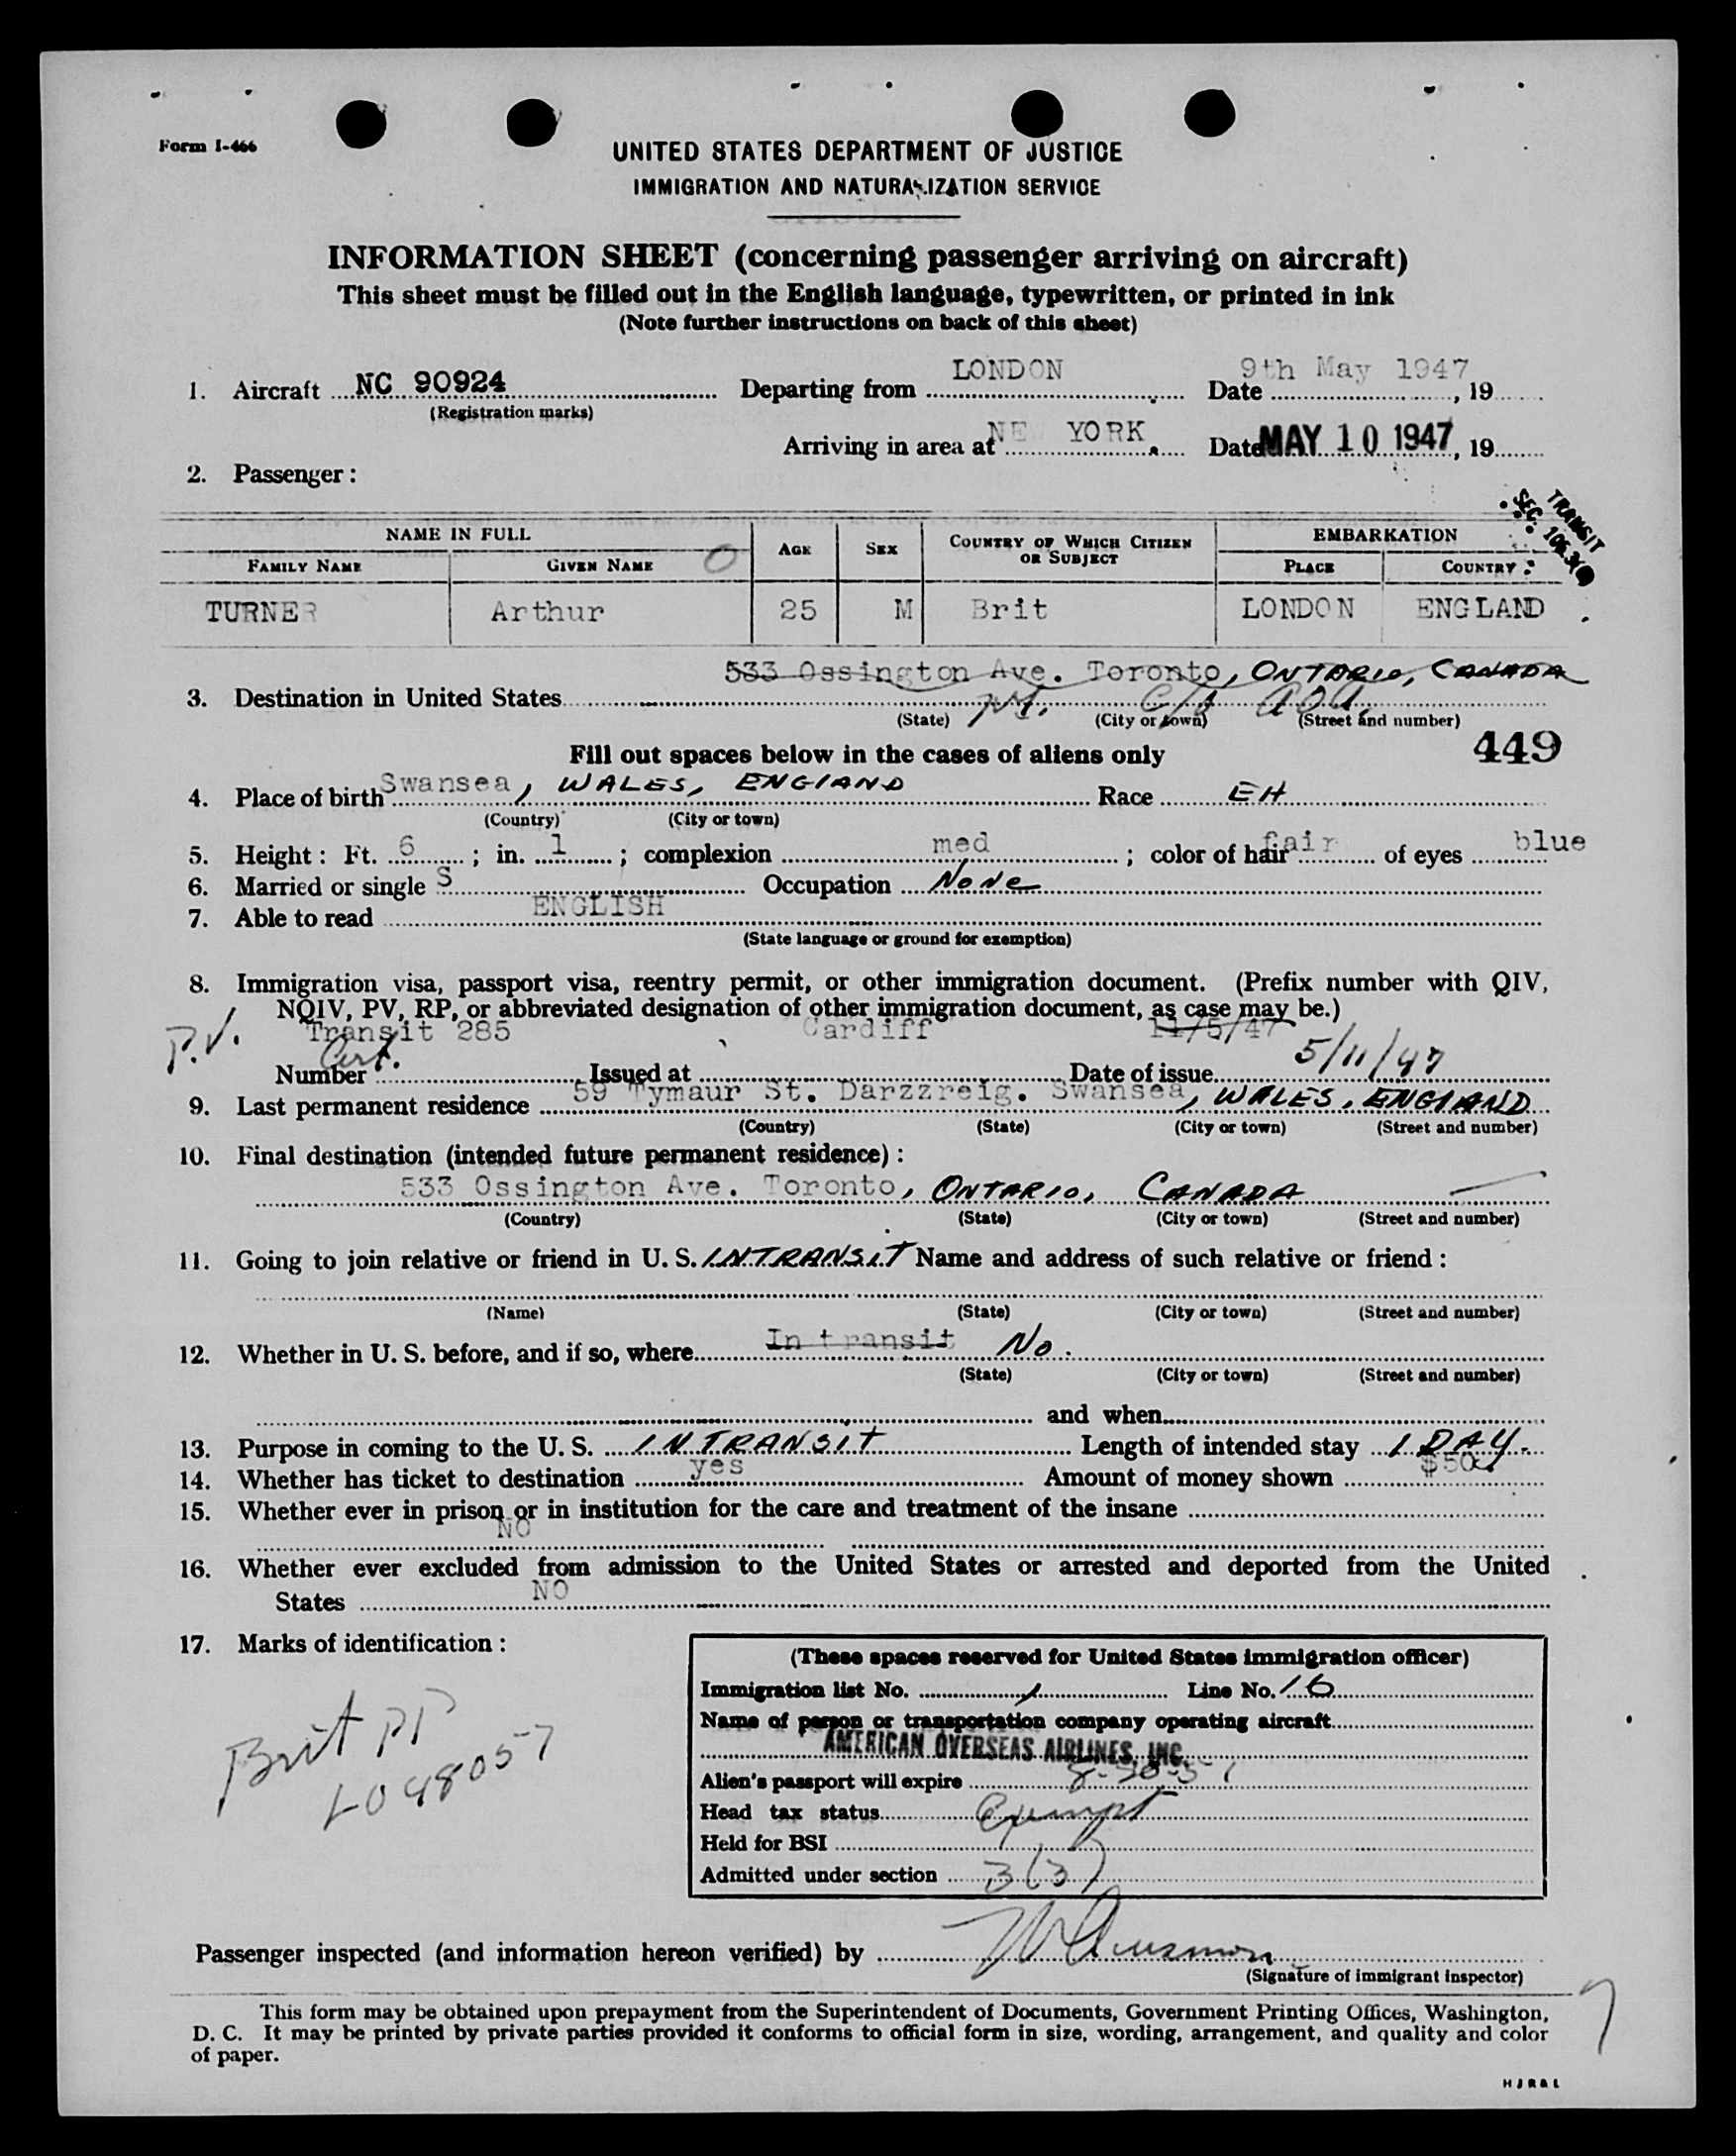 Form I-466
UNITED STATES DEPARTMENT OF JUSTICE
IMMIGRATION AND NATURALIZATION SERVICE
INFORMATION SHEET (concerning passenger arriving on aircraft)
This sheet must be filled out in the English language, typewritten, or printed in ink
(Note further instructions on back of this sheet)
1. Aircraft NC 90924 Departing from LONDON Date 9th May 1947, 19
(Registration marks)
Arriving in area at NE YORK Date MAY 10 1947, 19
2. Passenger:
TRANSIT
SEC.
NAME IN FULL AGE SEX COUNTRY OF WHICH CITIZEN OR SUBJECT EMBARKATION
FAMILY NAME GIVEN NAME PLACE COUNTRY
TURNER Arthur 25 M Brit LONDON ENGLAND
533 Ossington Ave. Toronto, ONTARIO, CANADA
3. Destination in United States N.Y. C/o AOA.
(State) (City or town) (Street and number)
Fill out spaces below in the cases of aliens only 449
4. Place of birth Swansea, WALES, ENGLAND Race EH
(Country) (City or town)
5. Height: Ft. 6; in. 1; complexion med; color of hair fair of eyes blue
6. Married or single S Occupation None
7. Able to read ENGLISH
(State language or ground for exemption)
8. Immigration visa, passport visa, reentry permit, or other immigration document. (Prefix number with QIV,
NQIV, PV, RP, or abbreviated designation of other immigration document, as case may be.)
P.V. Transit 285 Cardiff 11/5/47
Number Cert. Issued at Date of issue 5/11/47
9. Last permanent residence 59 Tymaur St. Darzzreig. Swansea, WALES, ENGLAND
(Country) (State) (City or town) (Street and number)
10. Final destination (intended future permanent residence):
533 Ossington Ave. Toronto, ONTARIO, CANADA
(Country) (State) (City or town) (Street and number)
11. Going to join relative or friend in U. S. INTRANSIT Name and address of such relative or friend:
(Name) (State) (City or town) (Street and number)
12. Whether in U. S. before, and if so, where In transit No.
(State) (City or town) (Street and number)
and when
13. Purpose in coming to the U. S. INTRANSIT Length of intended stay 1 DAY.
14. Whether has ticket to destination yes Amount of money shown $50.
15. Whether ever in prison or in institution for the care and treatment of the insane
NO
16. Whether ever excluded from admission to the United States or arrested and deported from the United
States NO
17. Marks of identification:
Brit PP
L048057
(These spaces reserved for United States immigration officer)
Immigration list No. 1 Line No. 16
Name of person or transportation company operating aircraft
AMERICAN OVERSEAS AIRLINES, INC.
Alien's passport will expire
Head tax status Exempt
Held for BSI
Admitted under section 3(3)
Passenger inspected (and information hereon verified) by
(Signature of immigrant inspector)
This form may be obtained upon prepayment from the Superintendent of Documents, Government Printing Offices, Washington,
D. C. It may be printed by private parties provided it conforms to official form in size, wording, arrangement, and quality and color
of paper.